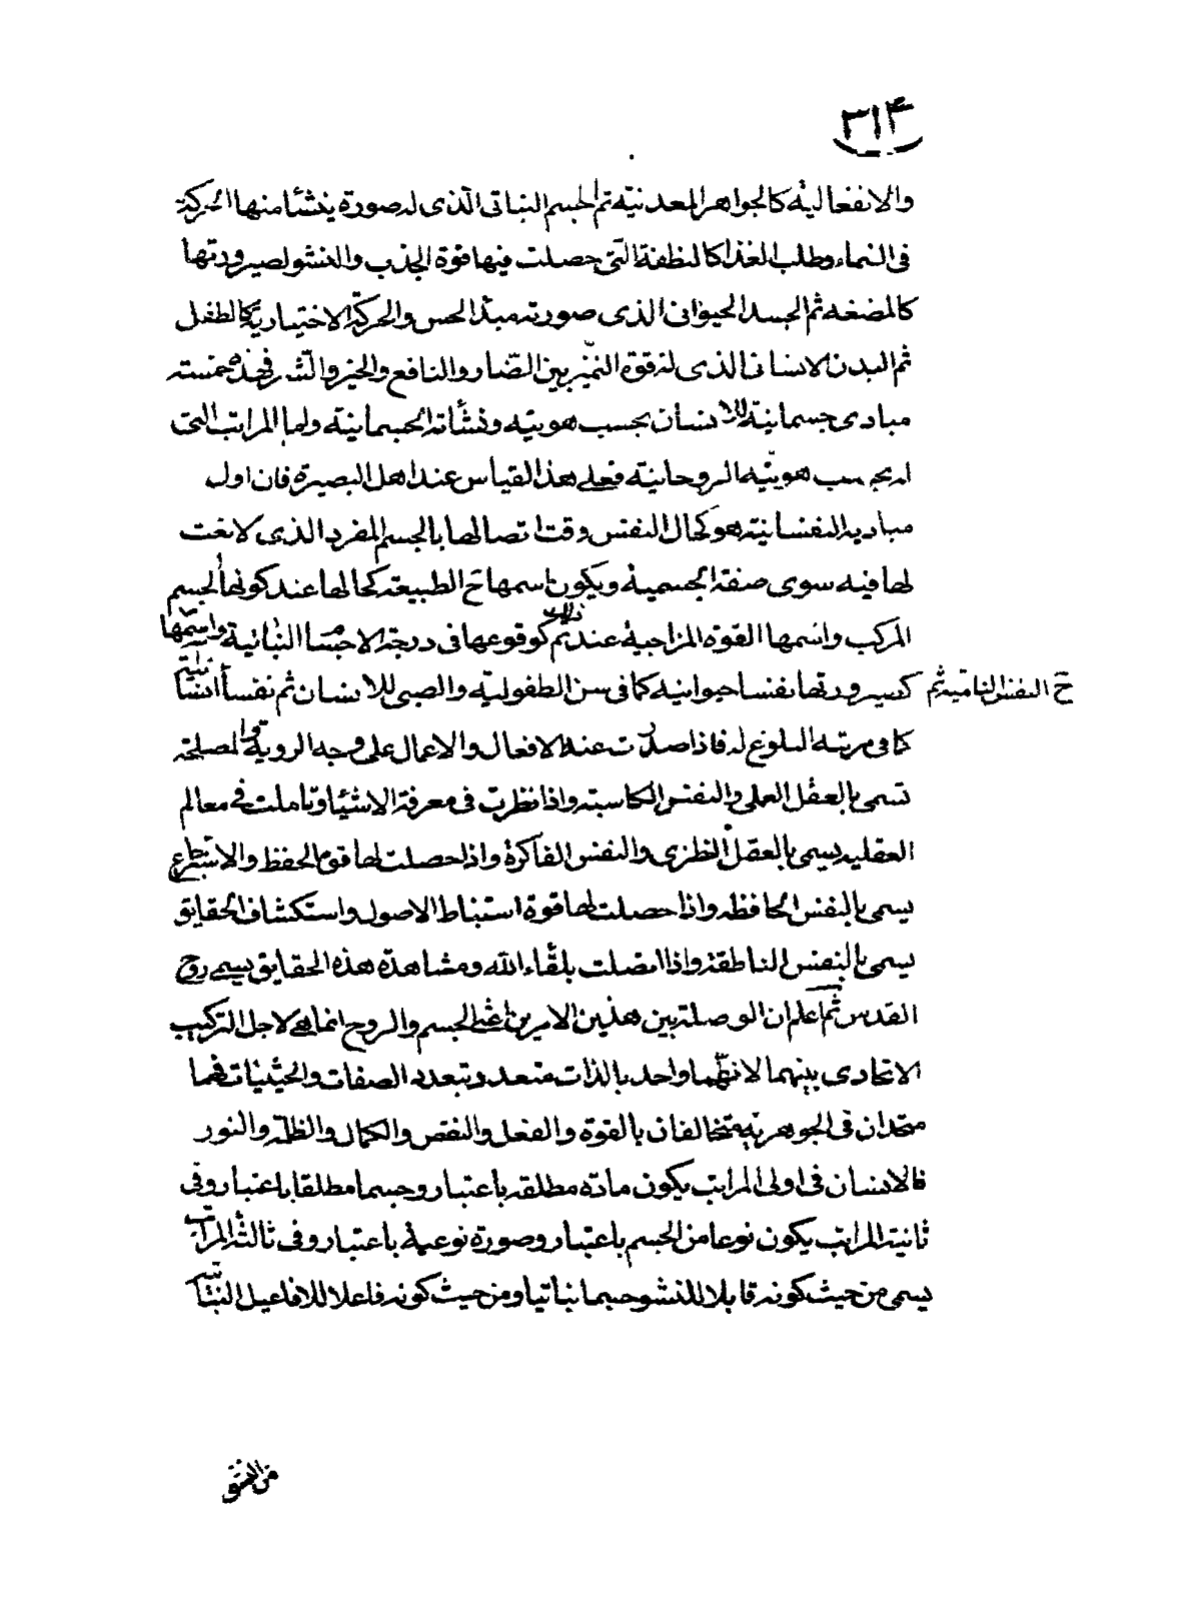 ٣١۴
والانفعالية كالجواهر المعدنية ثم الجسم النباتى الذى له صورة ينشأ منها الحركة
فى النماء وطلب الغذا كالنطفة التى حصلت فيها قوة الجذب والنشو لصيرورتها
كالمضغه ثم الجسد الحيوانى الذى صورته مبدا الحس والحركة الاختيارية كالطفل
ثم البدن الانسانى الذى له قوة التميز بين الضار والنافع والخير والشر فهذه خمسته
مبادى جسمانية للانسان بحسب هويته ونشأته الجسمانية واما المراتب التى
له بحسب هويته الروحانية فعلى هذا القياس عند اهل البصيرة فان اول
مباديه النفسانية هو كحال النفس وقت اتصالها بالجسم المفرد الذى لا نعت
لها فيه سوى صفة الجسمية ويكون اسمها ح الطبيعة كحالها عند كونها الجسم
المركب واسمها القوة المزاجية عند ذلك ثم كوقوعها فى درجة الاجسا النباتية واسمها
ح النفس النامية ثم كصيرورتها نفسا حيوانية كما فى سن الطفولية والصبى للانسان ثم نفسا انسانية
كما فى مرتبه البلوغ له فاذا صدرت عنه الافعال والاعمال على وجه الروية والمصلحة
تسمى بالعقل العملى والنفس الكاسبة واذا نظرت فى معرفة الاشيا وتاملت فى معالم
العقليه يسمى بالعقل النظرى والنفس الفاكرة واذا حصلت لها قوة الحفظ والاسترجاع
يسمى بالنفس الحافظه واذا حصلت لها قوة استنباط الاصول واستكشاف الحقايق
يسمى بالنفس الناطقة واذا اتصلت بلقاء الله ومشاهدة هذه الحقايق يسمى روح
القدس ثم اعلم ان الوصلة بين هذين الامرين اعنى الجسم والروح انما هى لاجل التركيب
الاتحادى بينهما لانهما واحد بالذات متعدد بتعدد الصفات والحيثيات فهما
متحدان فى الجوهرية متخالفان بالقوة والفعل والنقص والكمال والظلمة والنور
فالانسان فى اولى المراتب يكون مادة مطلقه باعتبار وجسما مطلقا باعتبار وفى
ثانية المراتب يكون نوعا من الجسم باعتبار وصورة نوعية باعتبار وفى ثالثة المراتب
يسمى من حيث كونه قابلا للنشو جسما نباتيا ومن حيث كونه فاعلا للافاعيل النباتية